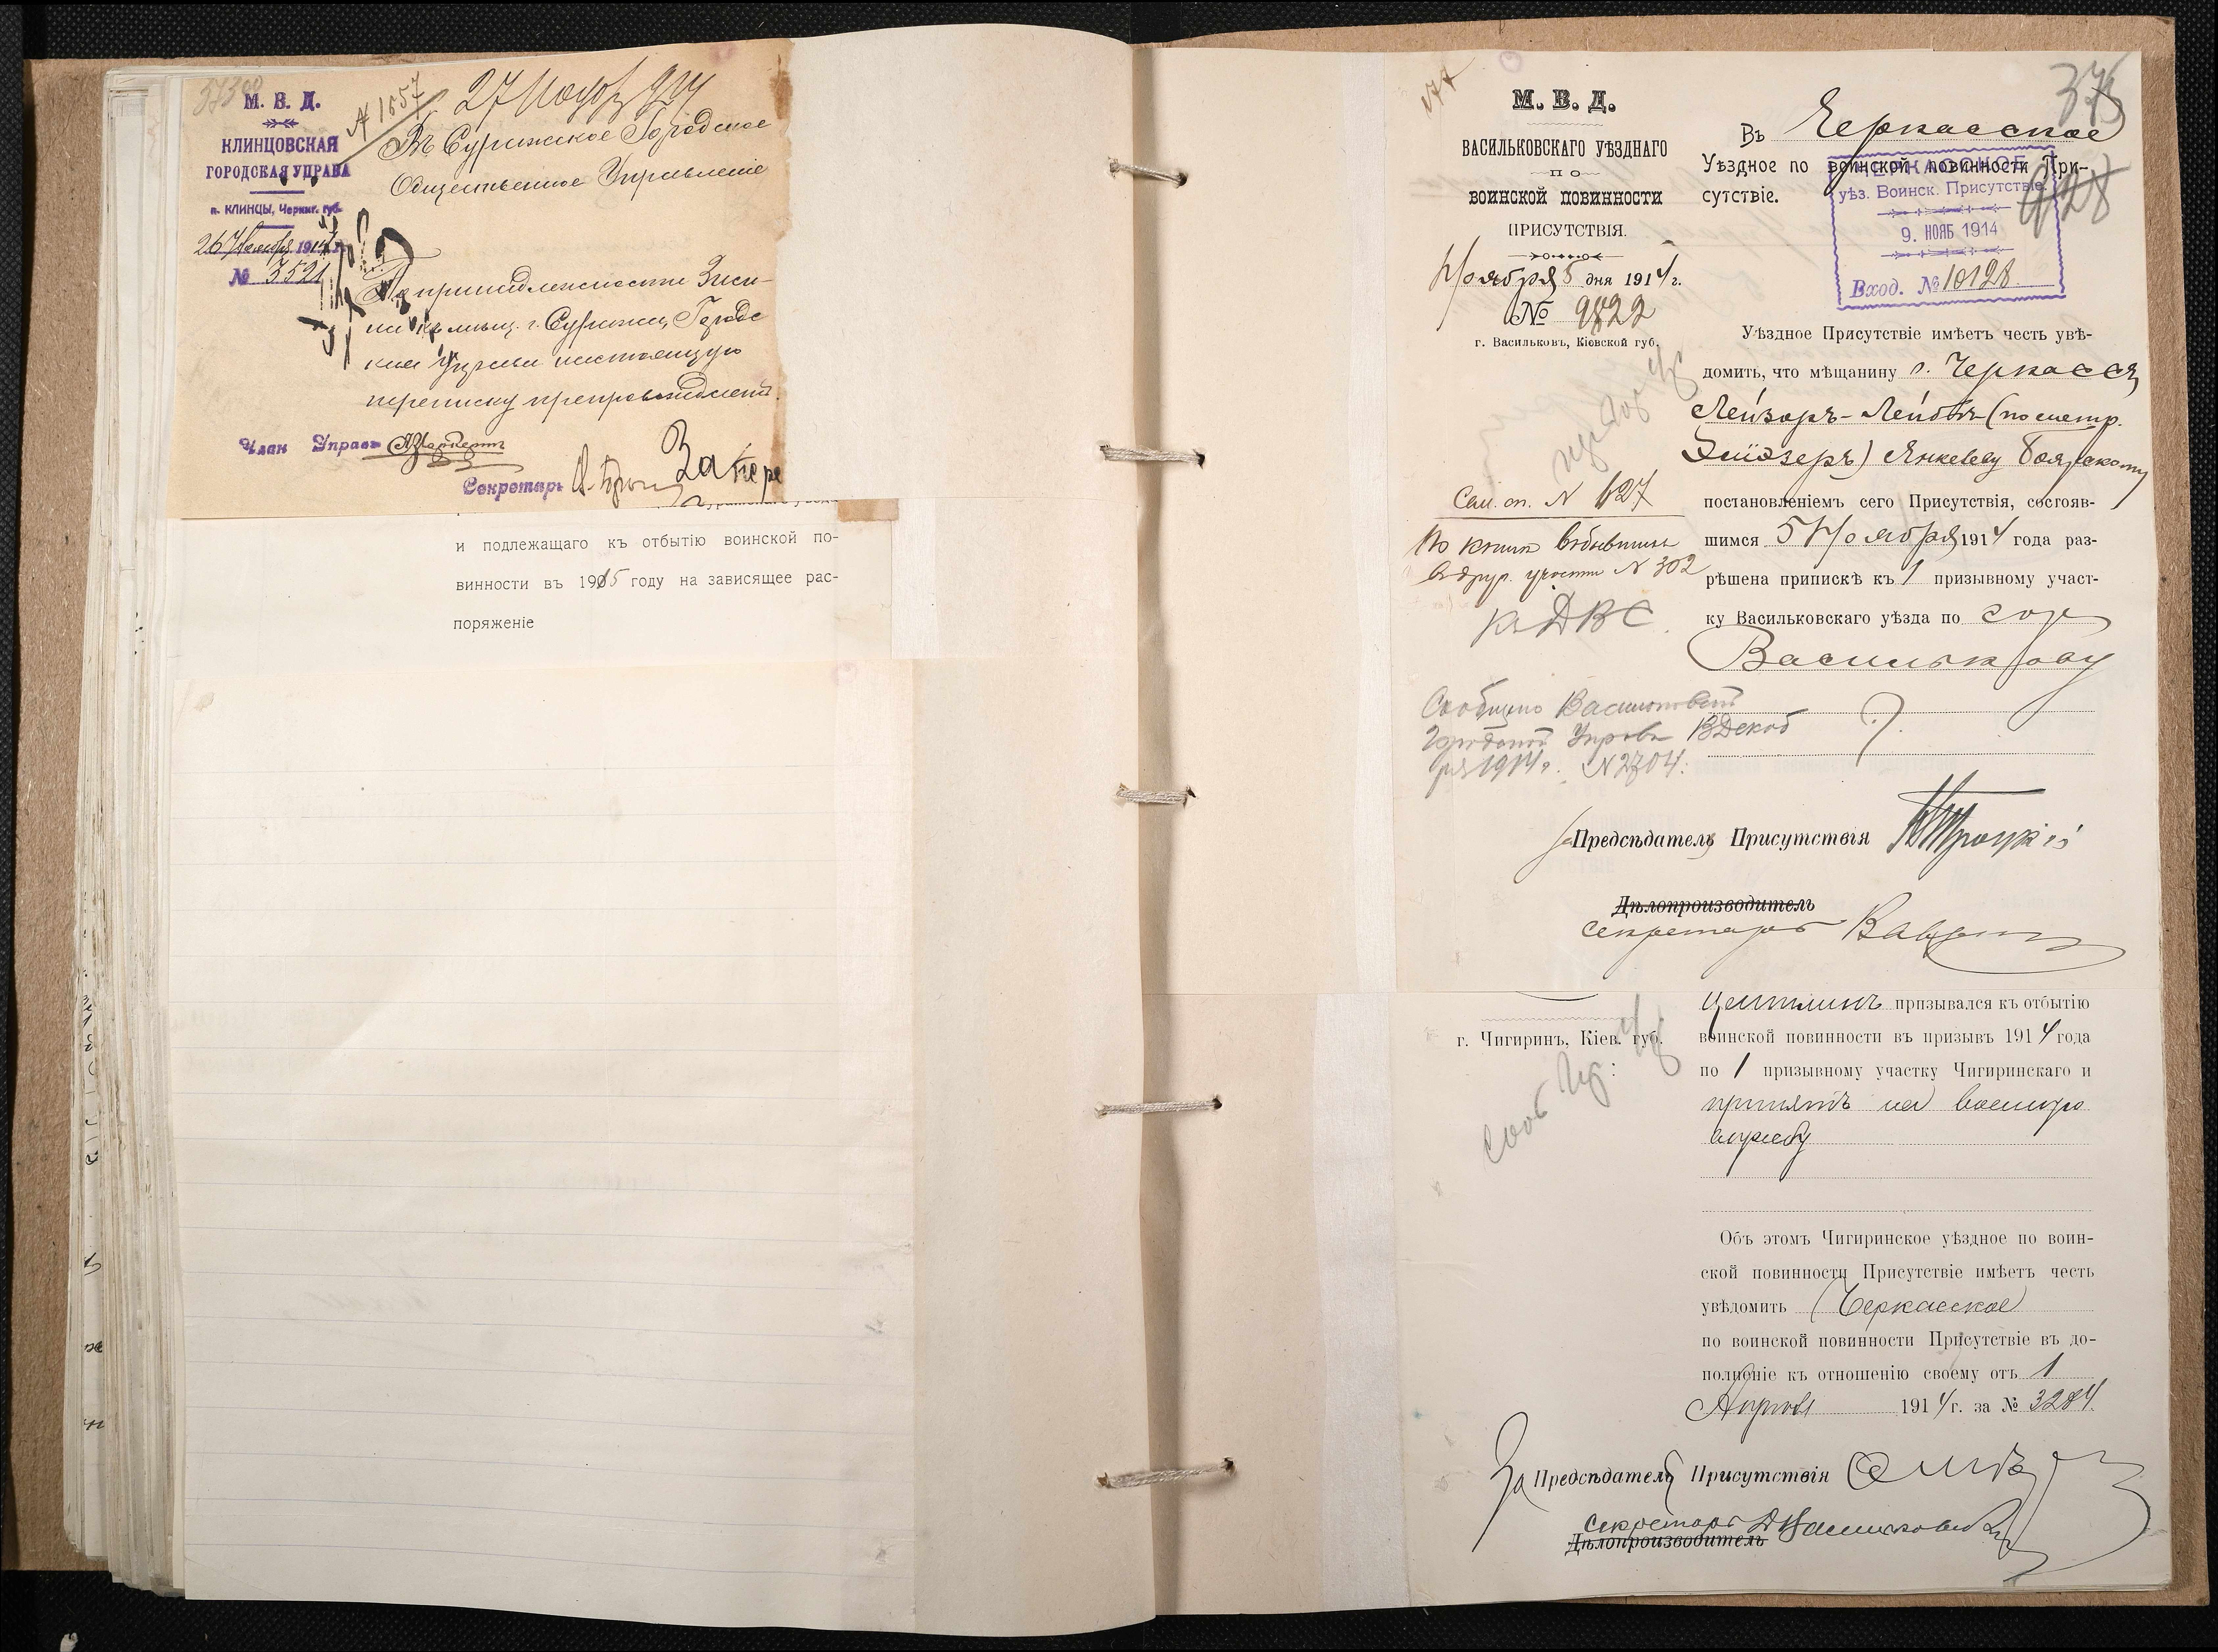 М. В. Д.
КЛИНЦОВСКАЯ
ГОРОДСКАЯ УПРАВА
п. КЛИНЦЫ, Черниг. губ.
26 Ноября 1914 г.
№ 3521
№ 1657
Въ Суражское Городское
Общественное Управленіе
По принадлежности
г. Суража, Городс
кая Управа настоящую
переписку препровождаетъ.
Членъ Управы
Секретарь
и подлежащаго къ отбытію воинской по-
винности въ 1915 году на зависящее рас-
поряженіе
М. В. Д.
ВАСИЛЬКОВСКАГО УѢЗДНАГО
ПО
ВОИНСКОЙ ПОВИННОСТИ
ПРИСУТСТВІЯ.
Ноября 5 дня 1914 г.
№ 9822
г. Васильковъ, Кіевской губ.
Въ Черкасское
Уѣздное по воинской повинности При-
сутствіе.
ЧЕРКАССКОЕ
уѣз. Воинск. Присутствіе
9. НОЯБ 1914
Вход. № 10128
Уѣздное Присутствіе имѣетъ честь увѣ-
домить, что мѣщанину г. Черкассъ
Лейзоръ-Лейбѣ (по метр.
Лейзеръ) Янкелеву Боярскому
постановленіемъ сего Присутствія, состояв-
шимся 5 Ноября 1914 года раз-
рѣшена припискѣ къ 1 призывному участ-
ку Васильковскаго уѣзда по гор
Василькову
Сем. сп. № 127
По книгѣ выбывшихъ
въ друг. участки № 302
къ Д В С.
Сообщено Васильковской
Городской Управѣ 13 Декаб
ря 1914 г. № 2704.
За Предсѣдателя Присутствія Троцкій
Дѣлопроизводитель
Секретарь
г. Чигиринъ, Кіев. губ.
Цейтлинъ призывался къ отбытію
воинской повинности въ призывъ 1914 года
по 1 призывному участку Чигиринскаго и
принятъ на военную
службу
Объ этомъ Чигиринское уѣздное по воин-
ской повинности Присутствіе имѣетъ честь
увѣдомить Черкасское
по воинской повинности Присутствіе въ до-
полненіе къ отношенію своему отъ 1
Апрѣля 1914 г. за № 3284.
За Предсѣдателя Присутствія
Секретарь
Дѣлопроизводитель